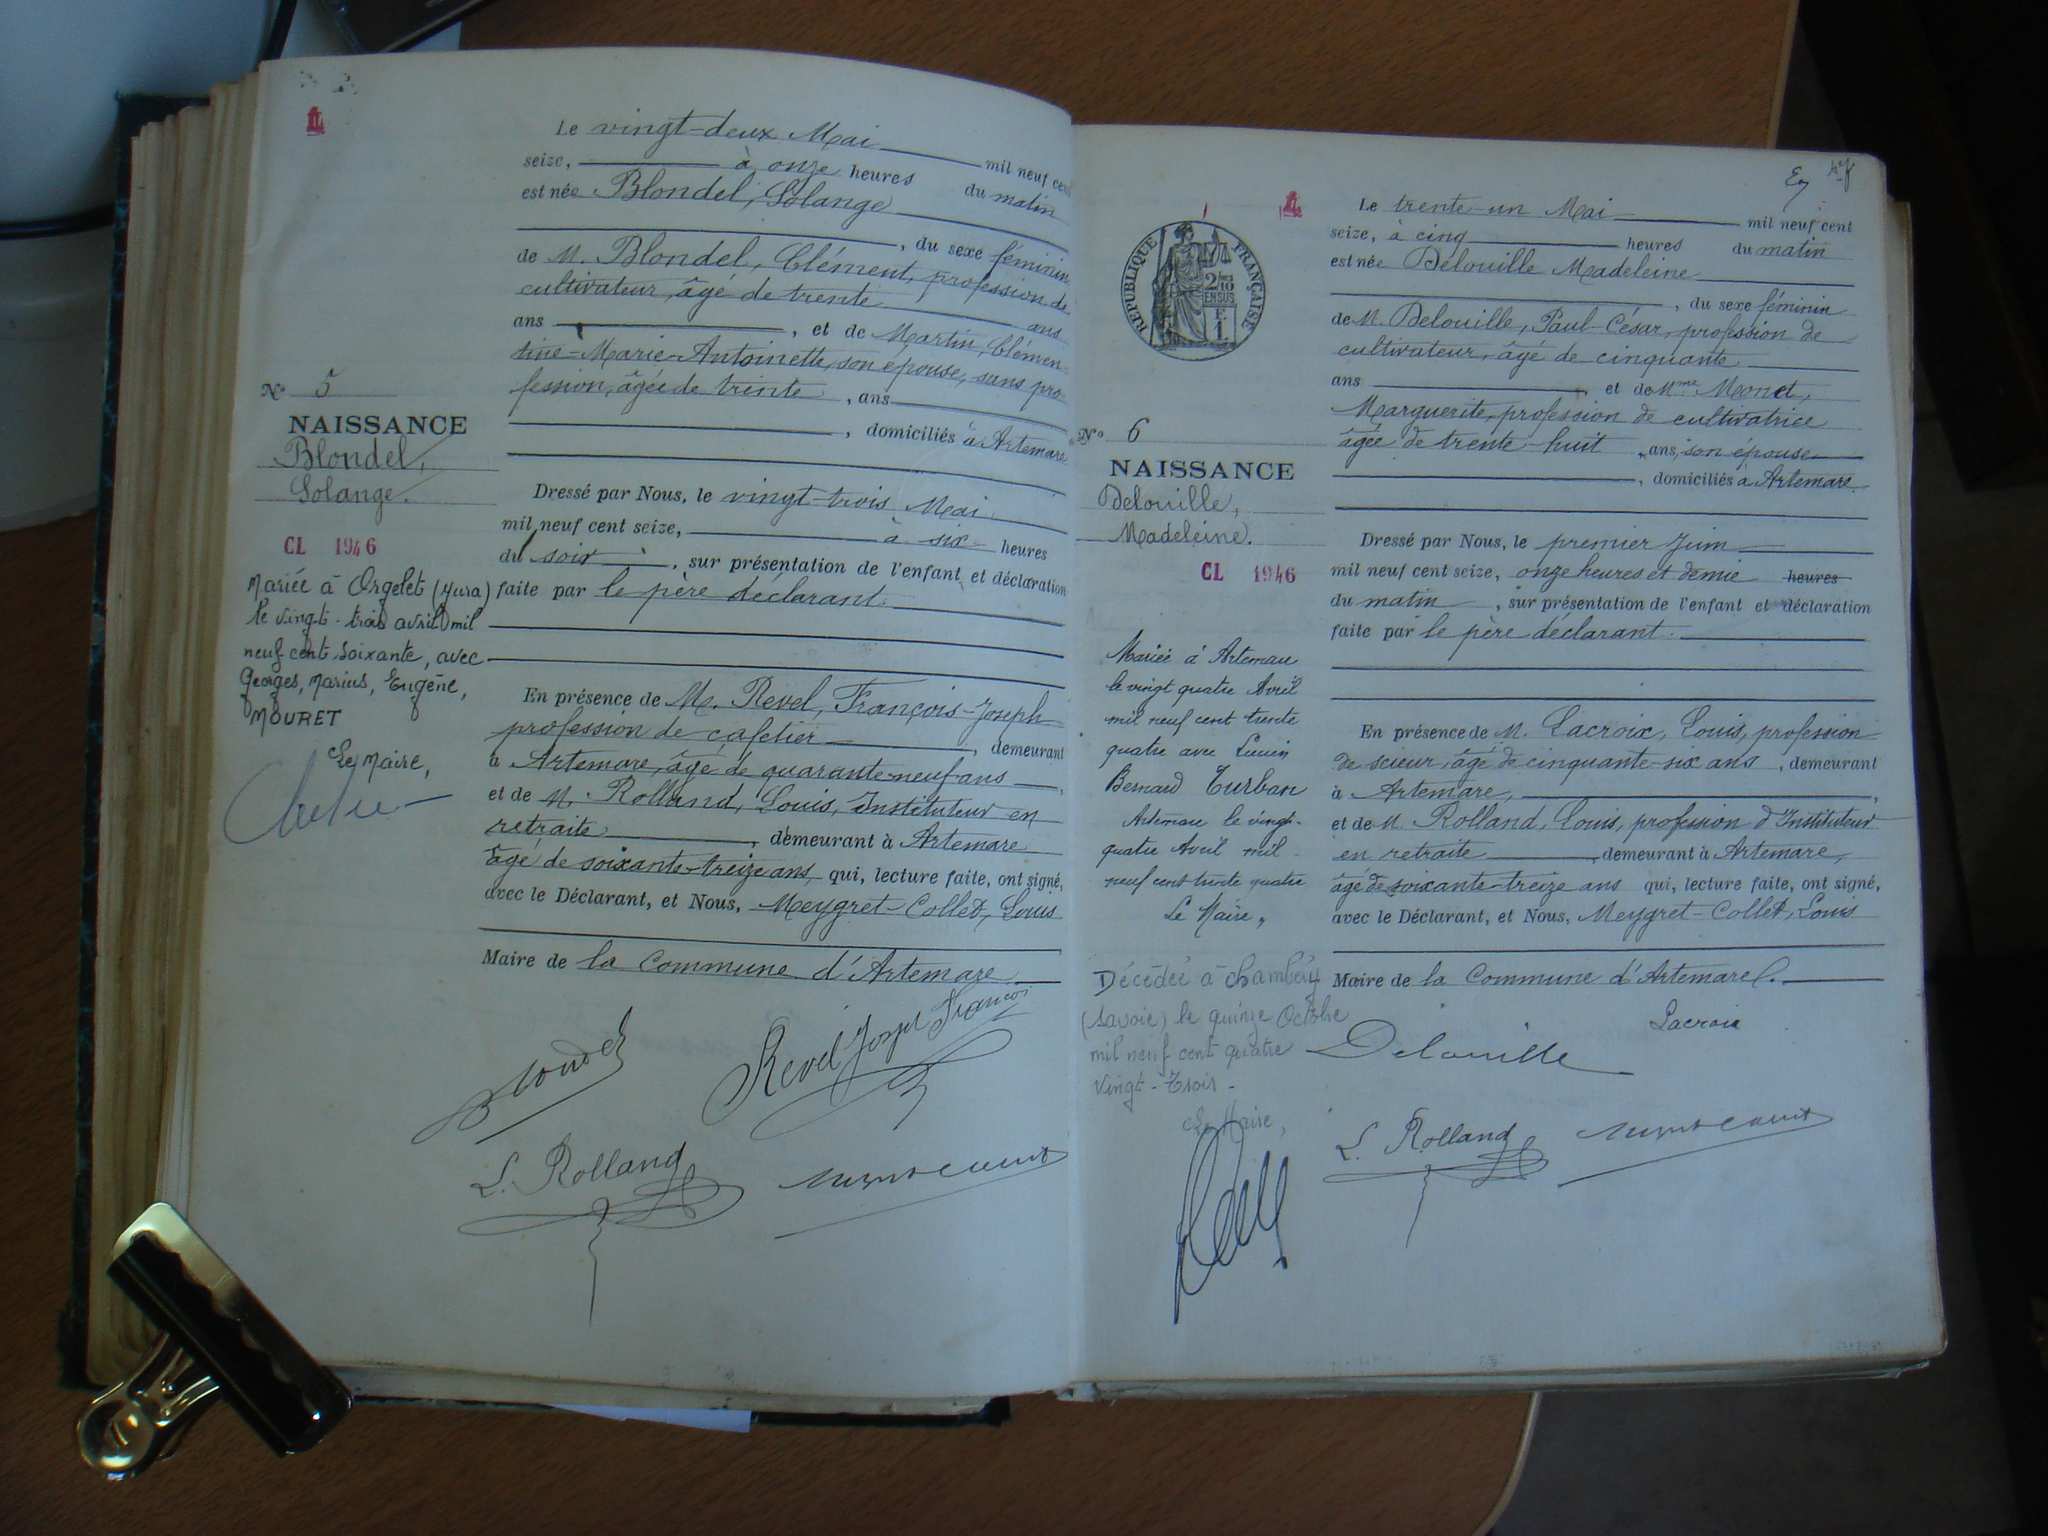 Le vingt-deux Mai mil neuf cent
seize, à onze heures du matin
est née Blondel, Solange
, du sexe féminin
de M. Blondel, Clément, profession de
cultivateur, âgé de trente ans
ans , et de Martin, Clémen-
tine-Marie-Antoinette, son épouse, sans pro-
fession, âgée de trente , ans
, domiciliés à Artemare
Nº 5
NAISSANCE
Blondel,
Solange.
CL 1946
Mariée à Orgelet (Jura)
le vingt-trois avril mil
neuf cent soixante, avec
Georges, Marius, Eugène,
MOURET
Le Maire,
Dressé par Nous, le vingt-trois Mai
mil neuf cent seize, à six heures
du soir , sur présentation de l'enfant et déclaration
faite par le père déclarant.
En présence de M. Revel, François-Joseph
profession de cafetier , demeurant
à Artemare, âgé de quarante-neuf ans ,
et de M. Rolland, Louis, Instituteur en
retraite , demeurant à Artemare
âgé de soixante-treize ans, qui, lecture faite, ont signé,
avec le Déclarant, et Nous, Meygret-Collet, Louis
Maire de la Commune d'Artemare
Blondel
Revel Joseph François
L. Rolland
Le trente-un Mai mil neuf cent
seize, à cinq heures du matin
est née Delouille Madeleine
, du sexe féminin
de M. Delouille, Paul-César, profession de
cultivateur, âgé de cinquante
ans , et de Mme Monet,
Marguerite, profession de cultivatrice
âgée de trente-huit , ans, son épouse
, domiciliés à Artemare.
RÉPUBLIQUE FRANÇAISE
2/10
EN SUS
F.
1
Nº 6
NAISSANCE
Delouille,
Madeleine.
CL 1946
Mariée à Artemare
le vingt quatre Avril
mil neuf cent trente
quatre avec Lucien
Bernard Turban
Artemare le vingt-
quatre Avril mil
neuf cent trente quatre
Le Maire,
Décédée à Chambéry
(Savoie) le quinze Octobre
mil neuf cent quatre
vingt-trois-
Le Maire,
Dressé par Nous, le premier Juin
mil neuf cent seize, onze heures et demie heures
du matin , sur présentation de l'enfant et déclaration
faite par le père déclarant.
En présence de M. Lacroix, Louis, profession
de scieur, âgé de cinquante-six ans , demeurant
à Artemare, ,
et de M. Rolland, Louis, profession d'Instituteur
en retraite , demeurant à Artemare,
âgé de soixante-treize ans qui, lecture faite, ont signé,
avec le Déclarant, et Nous, Meygret-Collet, Louis
Maire de la Commune d'Artemare.
Lacroix
Delouille
L. Rolland